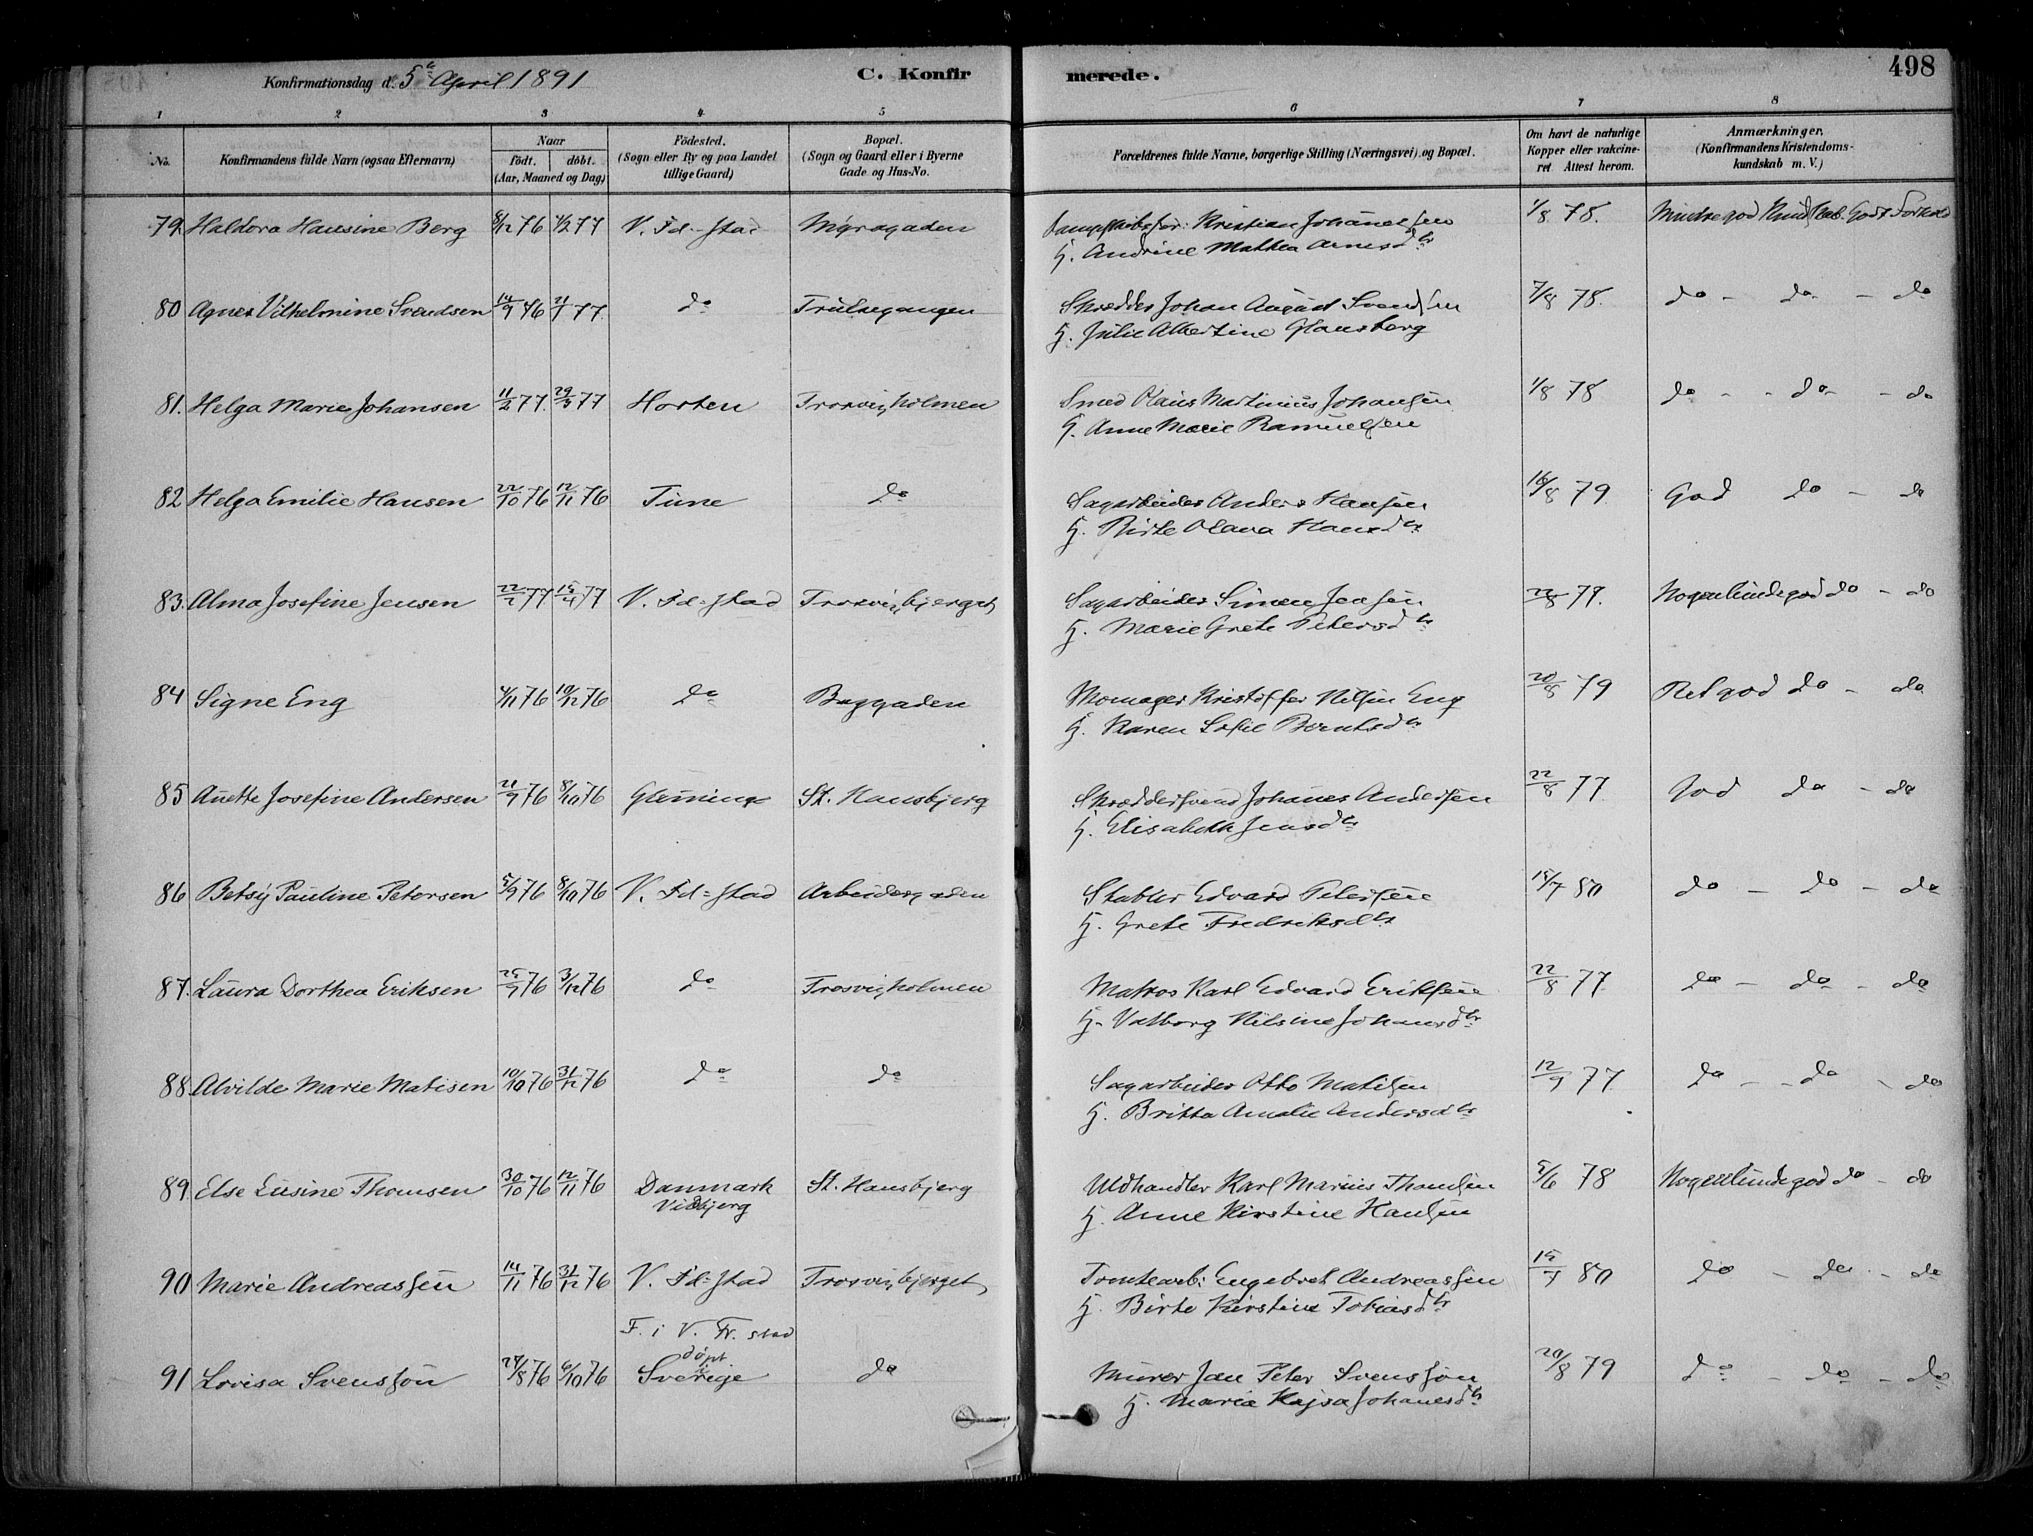 Konfirmationsdag d. 5te April 1891
C. Konfir merede. 498
1 2 3 4 5 6 7 8
No. Konfirmandens fulde Navn (ogsaa Efternavn) Naar födt. döbt. (Aar, Maaned og Dag) Födested. (Sogn eller By og paa Landet tillige Gaard) Bopæl. (Sogn og Gaard eller i Byerne Gade og Hus-No. Forældrenes fulde Navne, borgerlige Stilling (Næringsvei) og Bopæl. Om havt de naturlige Kopper eller vakcineret Attest herom. Anmærkninger. (Konfirmandens Kristendomskundskab m. V.)
79. Haldora Hansine Berg 8/12 76 4/2 77 V. Fd-stad Myragaden Kristian Johannesen 1/8 78. Mindre god Kundskab. Godt Forhold
H. Andrine Mathea Arnesdtr
80 Agnes Vilhelmine Svendsen 14/9 76 21/1 77 do Trulsegangen Skrædder Johan August Svendsen 7/8 78. do - do - do
H. Julie Albertine Glansberg
81. Helga Marie Johansen 11/2 77. 29/3 77 Horten Trosvigholmen Smed Olaus Martinius Johansen 1/8 78 do - - do - do
H. Anne Marie Ramuelsen
82 Helga Emilie Hansen 22/10 76 12/11 76 Tune do Sagarbeider Anders Hansen 16/8 79. God do - do
H. Birte Olava Hansdtr
83. Alma Josefine Jensen 22/2 77 15/4 77 V. Fd=stad Trosvigbjerget Sagarbeider Simen Jensen 22/8 79. Nogenlunde god do - do
H. Marie Grete Petersdtr
84 Signe Eng 4/11 76 10/12 76 do Baggaden Kristoffer Nilsen Eng 20/8 79 Ret god do - do
H. Karen Sofie Berntsdtr
85 Anette Josefine Andersen 21/9 76 8/10 76 Glemminge St. Hansbjerg Skræddersvend Johanes Andersen 22/8 77. God do - do
H. Elisabeth Jensdtr
86 Betsy Pauline Petersen 5/9 76 8/10 76 V. Fd=stad Arbeidergaden Stabler Edvard Petersen 15/7 80 do - do - do
H. Grete Fredriksdtr
87. Laura Dorthea Eriksen 25/9 76 3/12 76 do Trosvigholmen Matros Karl Edvard Eriksen 22/8 77 do - do - do
H. Valborg Nilsine Johansdtr
88 Alvilde Marie Matisen 10/10 76 31/12 76 do do Sagarbeider Otto Matisen 12/9 77. do - - do - do
H. Britta Amalie Andersdtr
89 Else Eusine Thomsen 30/10 76 12/11 76 Danmark St. Hansbjerg Uldhandler Karl Marius Thomsen 5/6 78 Nogenlunde god do - do
Vidbjerg H. Anne Kirstine Hansen
90 Marie Andreassen 14/11 76 31/12 76 V. Fd=stad Trosvigbjerget Tomtearb: Engebret Andreassen 15/7 80 do - do - do
H. Birte Kirstine Tobiasdtr
F. i V. Fr. stad
döpt i
91 Lovisa Svensson 27/8 76 6/10 76 Sverige do Murer Jan Peter Svensson 20/8 79 do - do - do
H. Maria Kajsa Johanesdtr